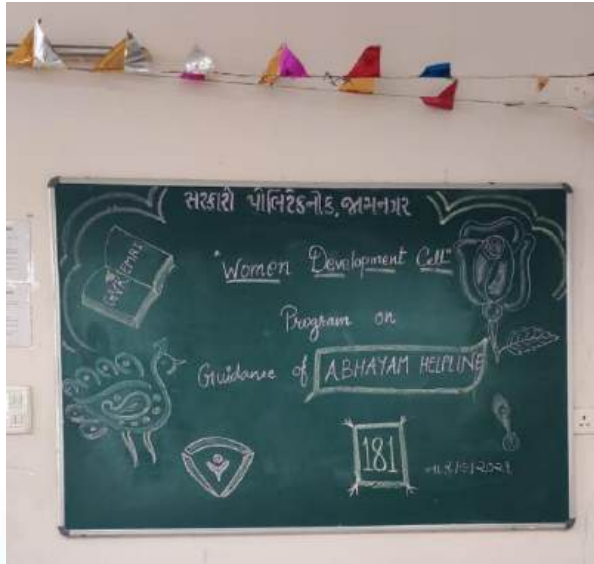 સરકારી પોલિટેકનીક, જામનગર
GVK EMRI
"Women Development Cell"
Program on
Guidance of ABHAYAM HELPLINE
181